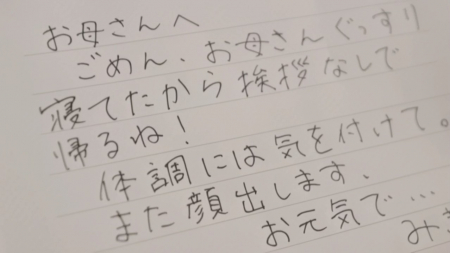 お母さんへ
ごめん、お母さんぐっすり
寝てたから挨拶なしで
帰るね!
体調には気を付けて。
また顔出します、
お元気で…
み